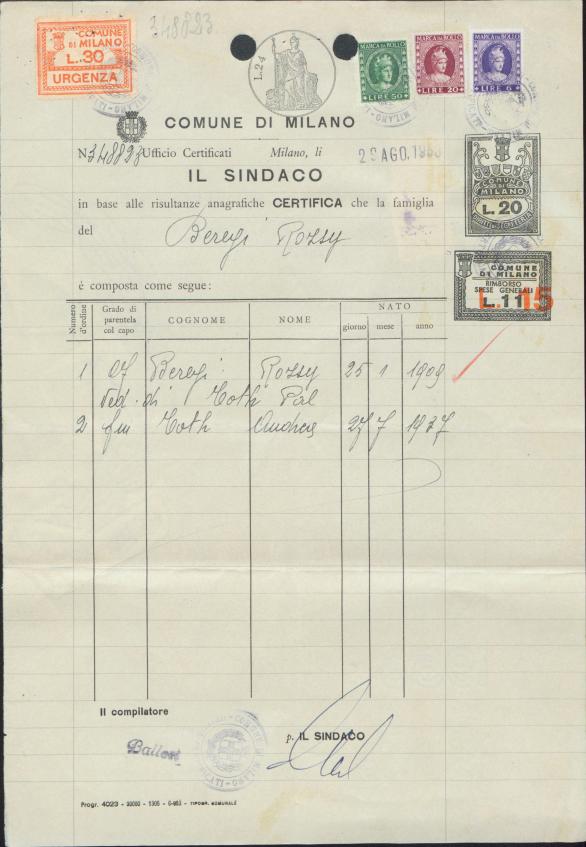 348893
COMUNE
DI MILANO
L. 30
URGENZA
L. 24
MARCA DA BOLLO
LIRE 50
MARCA DA BOLLO
LIRE 20
MARCA DA BOLLO
LIRE 6
COMUNE DI MILANO
N. 348893 Ufficio Certificati Milano, li 29 AGO. 1953
IL SINDACO
COMUNE
DI
MILANO
L. 20
in base alle risultanze anagrafiche CERTIFICA che la famiglia
del Beregi Rozsy
COMUNE
DI MILANO
RIMBORSO
SPESE GENERALI
L. 11
L. 15
é composta come segue:
Numero d'ordine
Grado di parentela col capo
COGNOME
NOME
NATO
giorno mese anno
1 cf Beregi Rozsy 25 1 1909
Ved. di Toth Pál
2 fm Toth Andrea 27 7 1937
Il compilatore
p. IL SINDACO
Balloni
Progr. 4023 - 30000 - 1305 - 6-953 - TIPOGR. COMUNALE